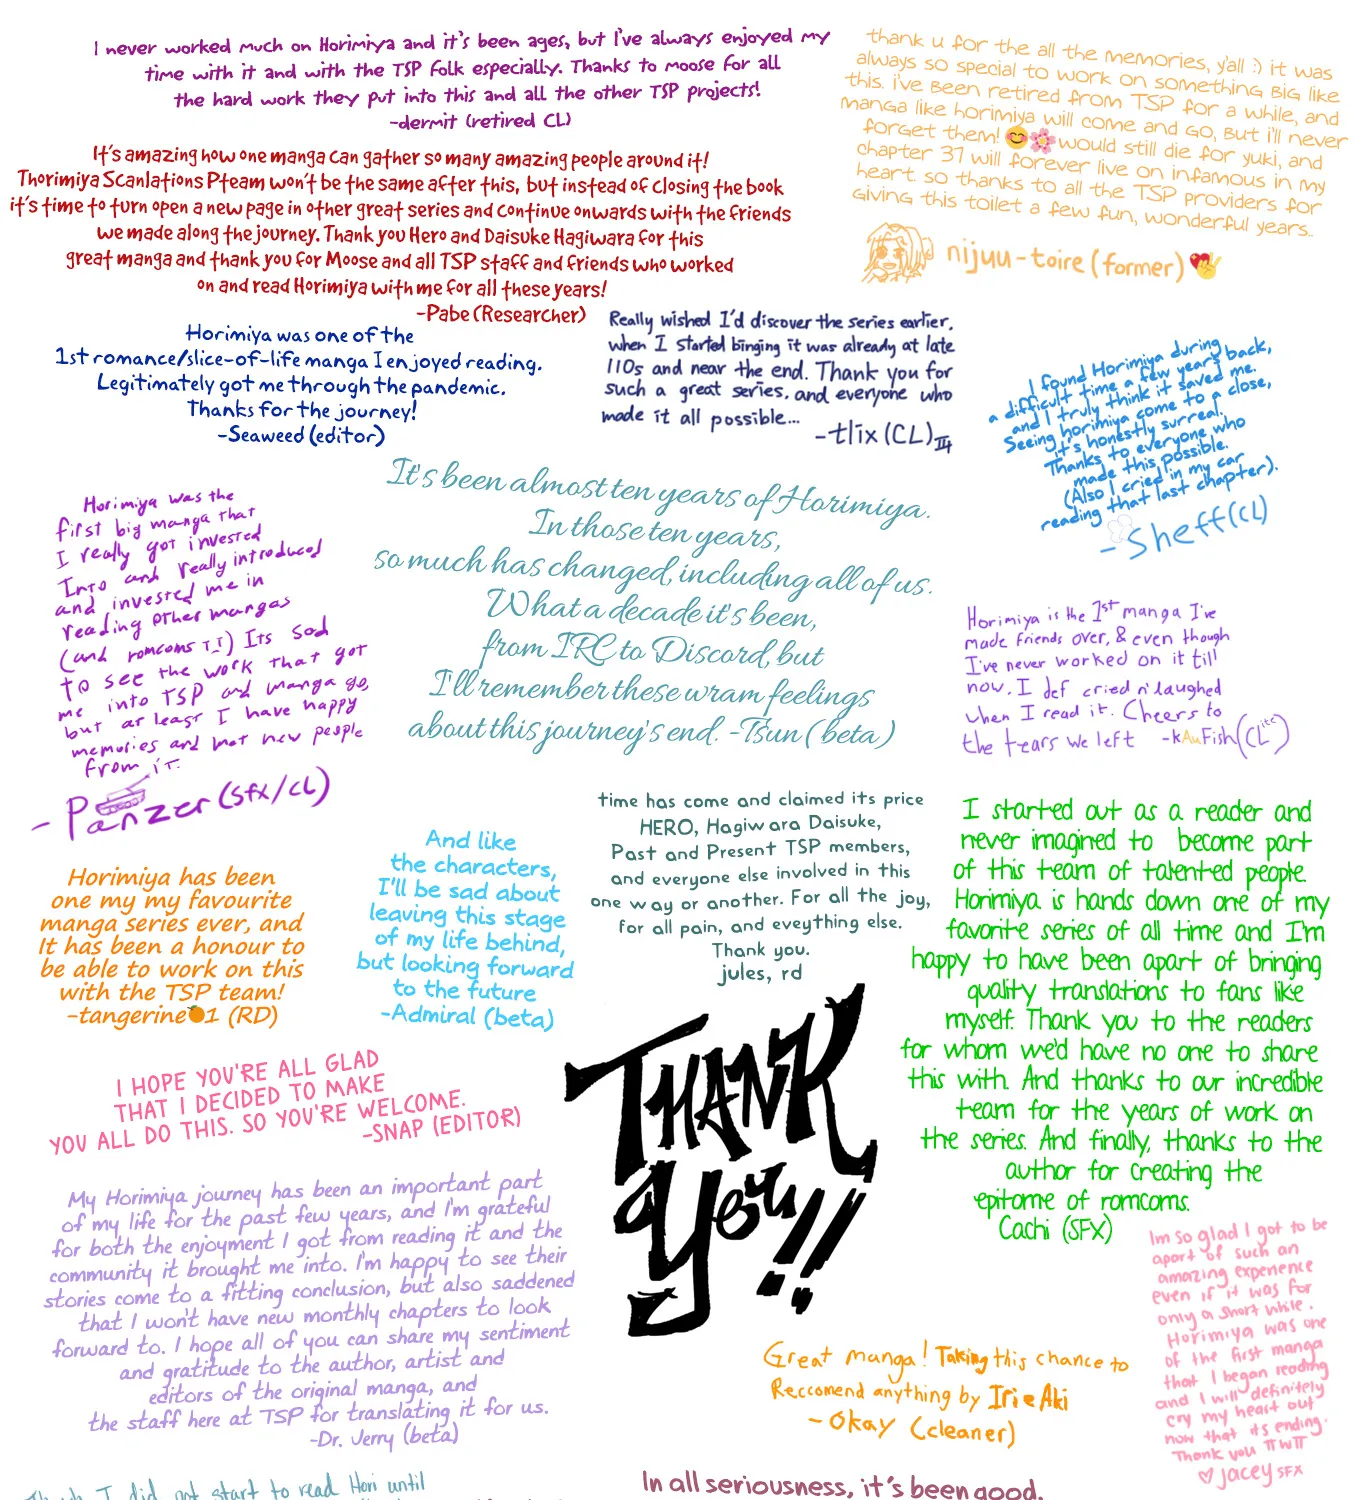 I never worked much on Horimiya and it's been ages, but I've always enjoyed my
time with it and with the TSP folk especially. Thanks to moose for all
the hard work they put into this and all the other TSP projects!
-dermit (retired CL)
thank u for the all the memories, y'all :) it was
always so special to work on something big like
this. i've been retired from TSP for a while, and
manga like horimiya will come and go, but i'll never
forget them! 😊🌸 would still die for yuki, and
chapter 37 will forever live on infamous in my
heart. so thanks to all the TSP providers for
giving this toilet a few fun, wonderful years..
nijuu-toire (former)
It's amazing how one manga can gather so many amazing people around it!
Thorimiya Scanlations Pteam won't be the same after this, but instead of closing the book
it's time to turn open a new page in other great series and continue onwards with the friends
we made along the journey. Thank you Hero and Daisuke Hagiwara for this
great manga and thank you for Moose and all TSP staff and friends who worked
on and read Horimiya with me for all these years!
-Pabe (Researcher)
Horimiya was one of the
1st romance/slice-of-life manga I enjoyed reading.
Legitimately got me through the pandemic.
Thanks for the journey!
-Seaweed (editor)
Really wished I'd discover the series earlier,
when I started binging it was already at late
110s and near the end. Thank you for
such a great series, and everyone who
made it all possible...
-tlix (CL)
I found Horimiya during
a difficult time a few years back,
and I truly think it saved me.
Seeing horimiya come to a close,
it's honestly surreal.
Thanks to everyone who
made this possible.
(Also I cried in my car
reading that last chapter).
-Sheff (CL)
Horimiya was the
first big manga that
I really got invested
Into and really introduced
and invested me in
reading other mangas
(and romcoms T_T) Its sad
to see the work that got
me into TSP and manga go,
but at least I have happy
memories and met new people
from it.
- Panzer (SFX/CL)
It's been almost ten years of Horimiya.
In those ten years,
so much has changed, including all of us.
What a decade it's been,
from IRC to Discord, but
I'll remember these wram feelings
about this journey's end. -Tsun (beta)
Horimiya is the 1st manga I've
made friends over, & even though
I've never worked on it till
now, I def cried n' laughed
when I read it. Cheers to
the tears we left -kAuFish (CLite)
Horimiya has been
one my my favourite
manga series ever, and
It has been a honour to
be able to work on this
with the TSP team!
-tangerine🍊1 (RD)
And like
the characters,
I'll be sad about
leaving this stage
of my life behind,
but looking forward
to the future
-Admiral (beta)
time has come and claimed its price
HERO, Hagiwara Daisuke,
Past and Present TSP members,
and everyone else involved in this
one way or another. For all the joy,
for all pain, and eveything else.
Thank you.
jules, rd
I started out as a reader and
never imagined to become part
of this team of talented people.
Horimiya is hands down one of my
favorite series of all time and I'm
happy to have been apart of bringing
quality translations to fans like
myself. Thank you to the readers
for whom we'd have no one to share
this with. And thanks to our incredible
team for the years of work on
the series. And finally, thanks to the
author for creating the
epitome of romcoms.
Cachi (SFX)
I HOPE YOU'RE ALL GLAD
THAT I DECIDED TO MAKE
YOU ALL DO THIS. SO YOU'RE WELCOME.
-SNAP (EDITOR)
THANK
YOU!!
My Horimiya journey has been an important part
of my life for the past few years, and I'm grateful
for both the enjoyment I got from reading it and the
community it brought me into. I'm happy to see their
stories come to a fitting conclusion, but also saddened
that I won't have new monthly chapters to look
forward to. I hope all of you can share my sentiment
and gratitude to the author, artist and
editors of the original manga, and
the staff here at TSP for translating it for us.
-Dr. Jerry (beta)
Im so glad I got to be
apart of such an
amazing experience
even if it was for
only a short while.
Horimiya was one
of the first manga
that I began reading
and I will definitely
cry my heart out
now that its ending.
Thank you TTwTT
♡ jacey SFX
Great manga! Taking this chance to
Reccomend anything by Irie Aki
- Okay (cleaner)
I did not start to read Hori until
In all seriousness, it's been good.